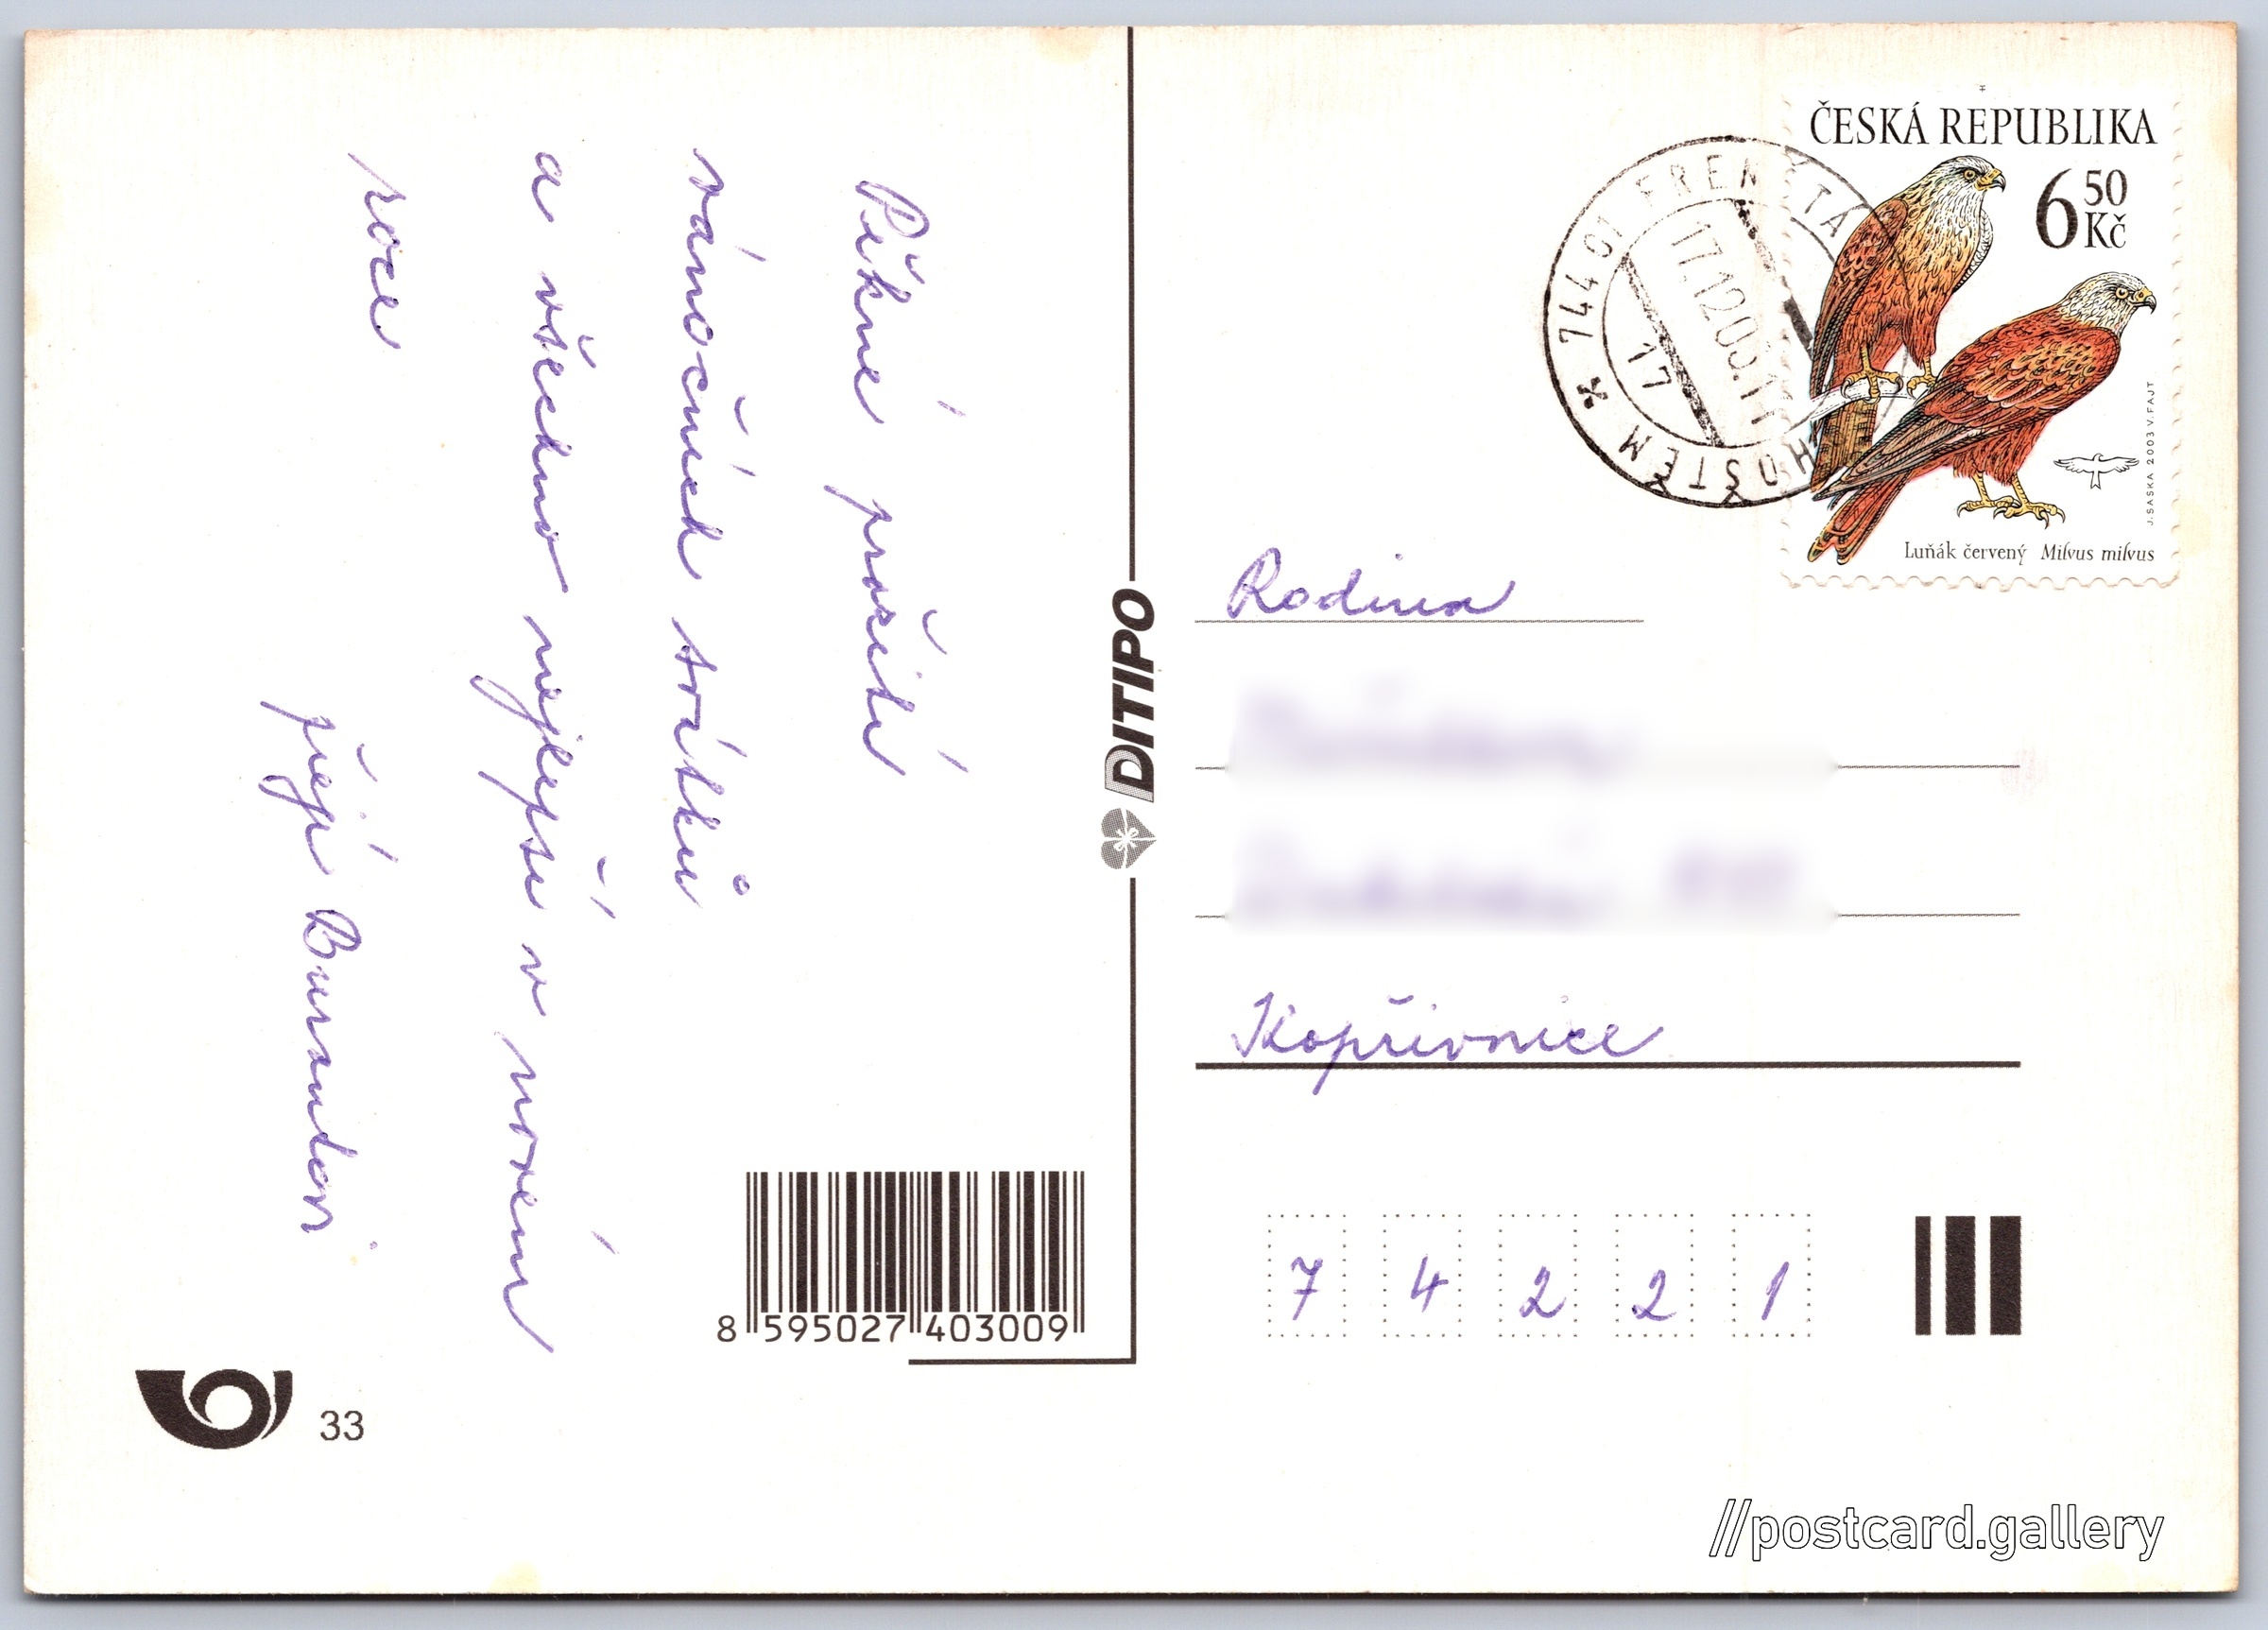 Pěkné prožití
vánočních svátků
a všechno nejlepší v novém
roce
přejí
ČESKÁ REPUBLIKA
6 50 Kč
J. SASKA 2003 V. FAJT
Luňák červený Milvus milvus
744 01 FRENŠTÁT POD RADHOŠTĚM
17.12.03
Rodina
Kopřivnice
7 4 2 2 1
DITIPO
8 595027 403009
33
//postcard.gallery